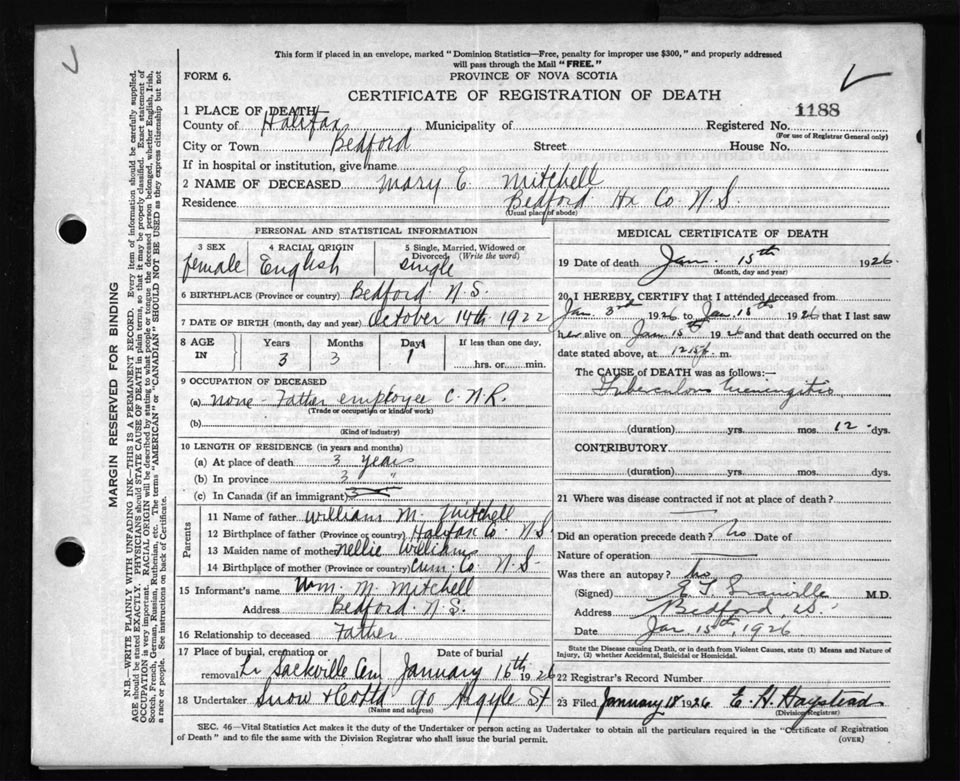 This form if placed in an envelope, marked "Dominion Statistics—Free, penalty for improper use $300," and properly addressed
will pass through the Mail "FREE."
FORM 6.
PROVINCE OF NOVA SCOTIA
CERTIFICATE OF REGISTRATION OF DEATH
1188
1 PLACE OF DEATH
County of Halifax Municipality of Registered No.
(For use of Registrar General only)
City or Town Bedford Street House No.
If in hospital or institution, give name
2 NAME OF DECEASED Mary E. Mitchell
Residence Bedford Hx Co. N.S.
(Usual place of abode)
PERSONAL AND STATISTICAL INFORMATION
3 SEX 4 RACIAL ORIGIN 5 Single, Married, Widowed or
Divorced (Write the word)
female English single
6 BIRTHPLACE (Province or country) Bedford N.S.
7 DATE OF BIRTH (month, day and year) October 14th 1922
8 AGE IN Years Months Days If less than one day,
3 3 1 hrs. or min.
9 OCCUPATION OF DECEASED
(a) none - Father employee C.N.R.
(Trade or occupation or kind of work)
(b)
(Kind of industry)
10 LENGTH OF RESIDENCE (in years and months)
(a) At place of death 3 years
(b) In province 3 "
(c) In Canada (if an immigrant) 3
Parents
11 Name of father William M. Mitchell
12 Birthplace of father (Province or country) Halifax Co. N S
13 Maiden name of mother Nellie Williams
14 Birthplace of mother (Province or country) Cum. Co. N.S-
15 Informant's name Wm. M. Mitchell
Address Bedford. N.S.
16 Relationship to deceased Father
17 Place of burial, cremation or Date of burial
removal Lr Sackville Cem January 16th 1926
18 Undertaker Snow & Co Ltd 90 Argyle St
(Name and address)
MEDICAL CERTIFICATE OF DEATH
19 Date of death Jan. 15th 1926.
(Month, day and year)
20 I HEREBY CERTIFY that I attended deceased from
Jan. 3rd 1926 to Jan. 15th 1926 that I last saw
her alive on Jan 15th 1926 and that death occurred on the
date stated above, at m.
The CAUSE of DEATH was as follows:—
Tuberculous Meningitis
(duration) yrs. mos. 12 dys.
CONTRIBUTORY.
(duration) yrs. mos. dys.
21 Where was disease contracted if not at place of death?
Did an operation precede death? No Date of
Nature of operation
Was there an autopsy? No
(Signed) E.T. Granville M.D.
Address Bedford N.S.
Date Jan 15th, 1926
State the Disease causing Death, or in death from Violent Causes, state (1) Means and Nature of
Injury, (2) whether Accidental, Suicidal or Homicidal.
22 Registrar's Record Number
23 Filed January 18 1926 E. H. Haystead
(Division Registrar)
SEC. 46—Vital Statistics Act makes it the duty of the Undertaker or person acting as Undertaker to obtain all the particulars required in the "Certificate of Registration
of Death" and to file the same with the Division Registrar who shall issue the burial permit.
(OVER)
MARGIN RESERVED FOR BINDING
N.B.—WRITE PLAINLY WITH UNFADING INK—THIS IS A PERMANENT RECORD. Every item of information should be carefully supplied.
AGE should be stated EXACTLY. PHYSICIANS should STATE CAUSE OF DEATH in plain terms, so that it may be properly classified. Exact statement of
OCCUPATION is very important. RACIAL ORIGIN will be described by stating to what people or tongue the deceased person belonged, whether English, Irish,
Scotch, French, German, Russian, Ruthenian, etc. The terms "AMERICAN" or "CANADIAN" SHOULD NOT BE USED as they express citizenship but not
a race or people. See instructions on back of Certificate.